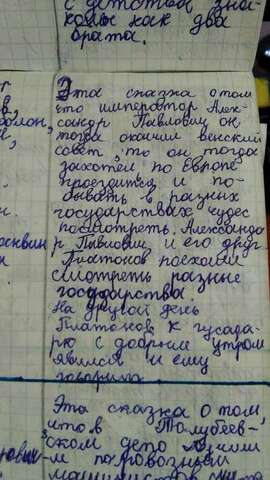 с детства, зна-
комы как два
брата.
2
Эта сказка о том
что император Алек-
сандр Павлович он
тогда окончил венский
совет, то он тогда
захотел по Европе
проездится и по-
бывать в разных
государствах чудес
посмотреть. Александ
р Павлович и его друг
Платонов поехали
смотреть разные
государства.
На другой день
Платонов к гусуда-
рю с добрым утром
явился и ему
говорила
Эта сказка о том,
что в
ском депо
м паровозный